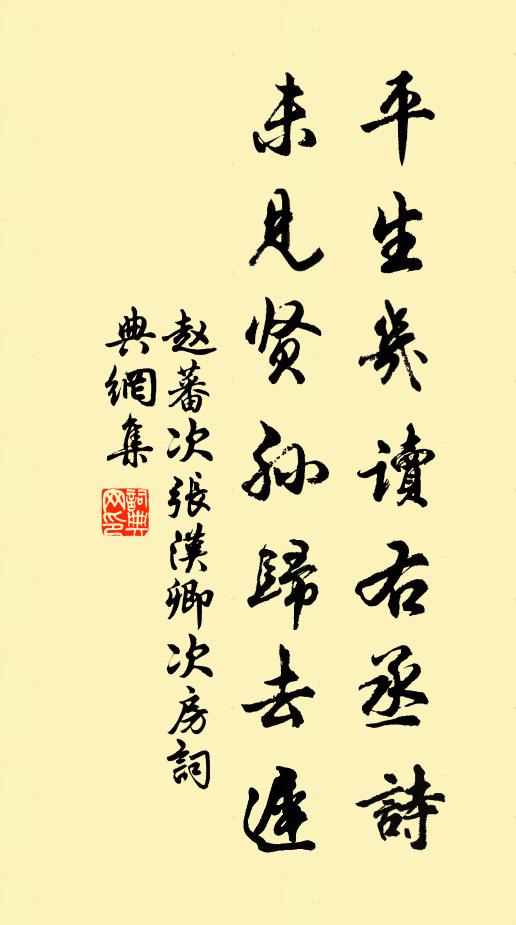 平生幾讀右丞詩
未見贤孙歸去遲
赵蕃次張漢卿次房詞
典網集
詞典
网印